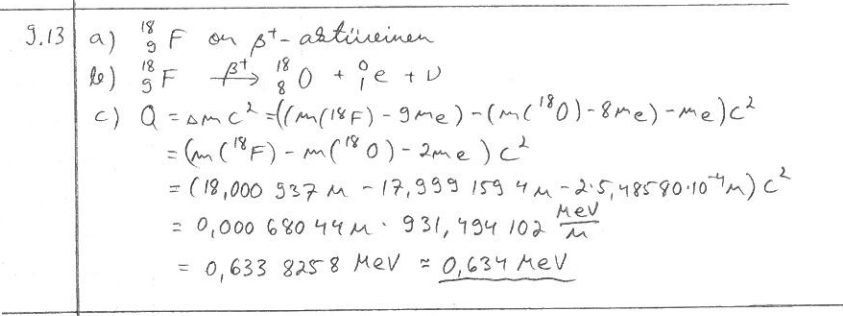 9.13 a) ¹⁸₉F on β⁺-aktiivinen
b) ¹⁸₉F →(β⁺) ¹⁸₈O + ⁰₁e + ν
c) Q = Δmc² = ((m(¹⁸F) - 9me) - (m(¹⁸O) - 8me) - me)c²
= (m(¹⁸F) - m(¹⁸O) - 2me)c²
= (18,000 937 u - 17,999 159 4 u - 2·5,48580·10⁻⁴u)c²
= 0,000 680 44 u · 931,494 102 MeV/u
= 0,633 8258 MeV ≈ 0,634 MeV